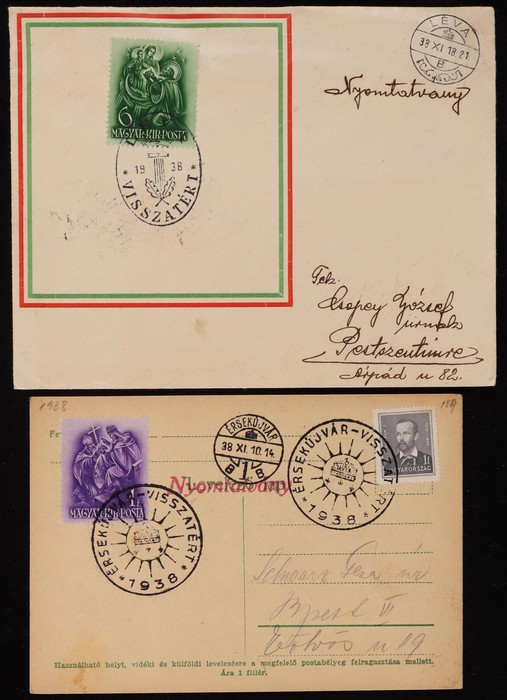 LÉVA
38 XI. 18. 21
B
Nyomtatvány
6f
MAGYAR·KIR·POSTA
19 38
* VISSZATÉRT *
Tek.
Csepey József
úrnak
Pestszentimre
Árpád u 82.
1938
ÉRSEKÚJVÁR
38 XI. 10. 14
B 1 B
1f
MAGYAR·KIR·POSTA
MAGYARORSZÁG 1f
Nyomtatvány
* ÉRSEKÚJVÁR-VISSZATÉRT *
1938
* ÉRSEKÚJVÁR-VISSZATÉRT *
1938
Schwarz Géza úr
Bpest VI
Eötvös u 19
Használható helyi, vidéki és külföldi levelezésre a megfelelő postabélyeg felragasztása mellett.
Ára 1 fillér.